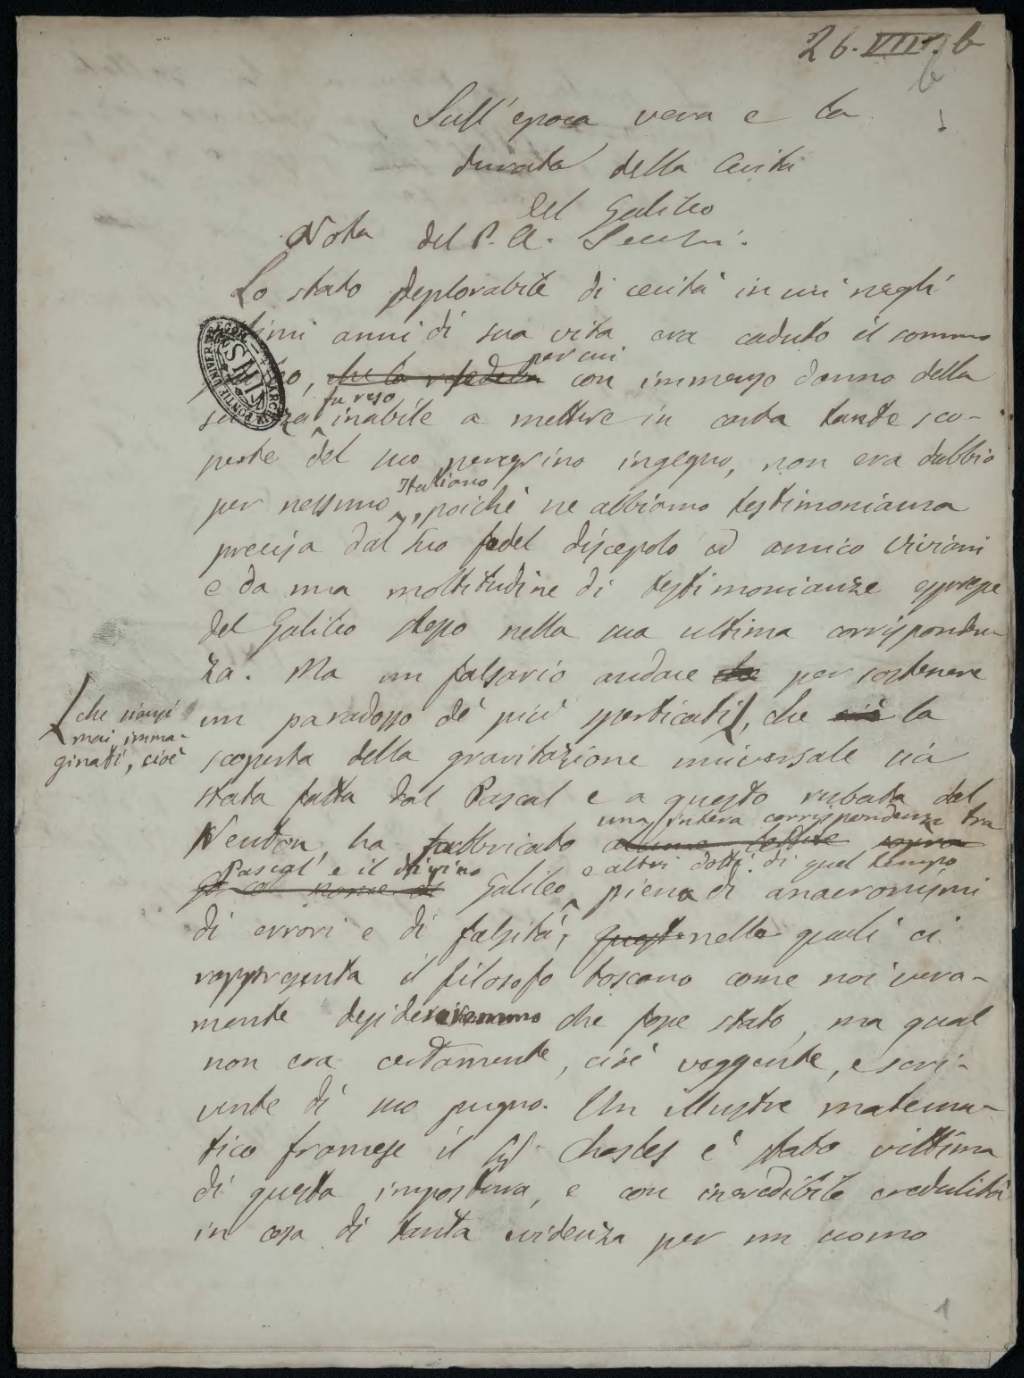 26. VIII. b
b
1
Sull'epoca vera e la
durata della cecità
del Galileo
Nota del P. A. Secchi.
Lo stato deplorabile di cecità in cui negli
ultimi anni di sua vita era caduto il sommo
per cui
che lo rendeva con immenso danno della
fu reso
scienza inabile a mettere in carta tante sco-
perte del suo peregrino ingegno, non era dubbio
Italiano
per nessuno, poichè ne abbiamo testimonianza
precisa dal suo fedel discepolo ed amico Viviani
e da una moltitudine di testimonianze espresse
del Galileo stesso nella sua ultima corrisponden-
za. Ma un falsario audace per sostenere
un paradosso de' più sperticati, che cioè la
che siansi
mai imma-
ginati, cioè
scoperta della gravitazione universale sia
stata fatta dal Pascal e a questo rubata dal
una intera corrispondenza tra
Newton, ha fabbricato alcune lettere
Pascal e il divino
e altri dotti di quel tempo
Galileo piena di anacronismi
di errori e di falsità, nelle quali ci
rappresenta il filosofo toscano come noi vera-
mente desidereremmo che fosse stato, ma qual
non era certamente, cioè veggente, e scri-
vente di suo pugno. Un illustre matema-
tico francese il Sig. Chasles è stato vittima
di questa impostura, e con incredibile credulità
in cosa di tanta evidenza per un uomo
1